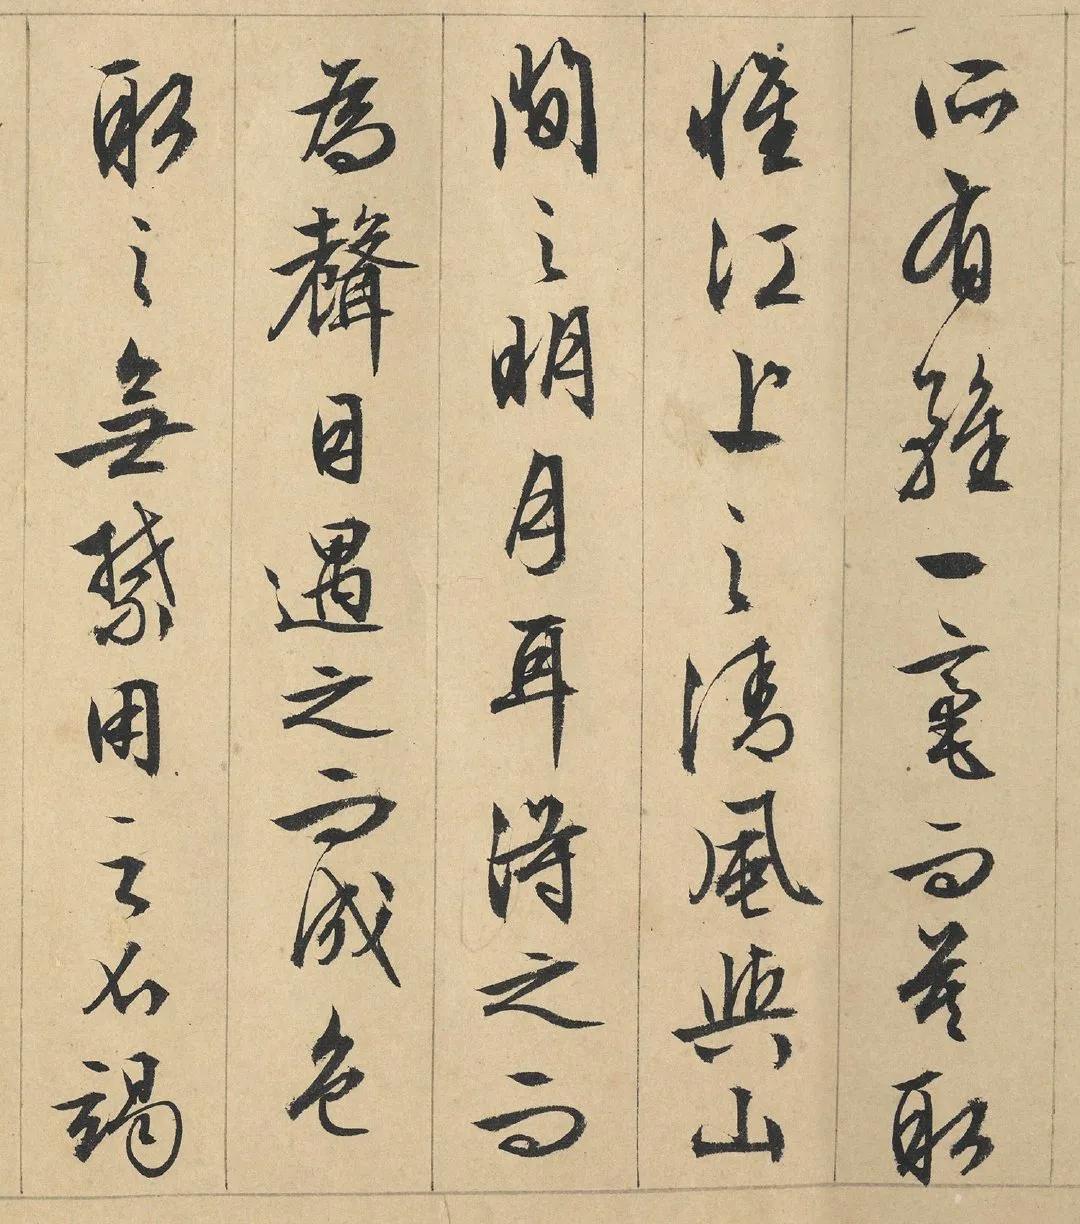 所有雖一毫而莫取
惟江上之清風與山
間之明月耳得之而
為聲目遇之而成色
取之無禁用之不竭